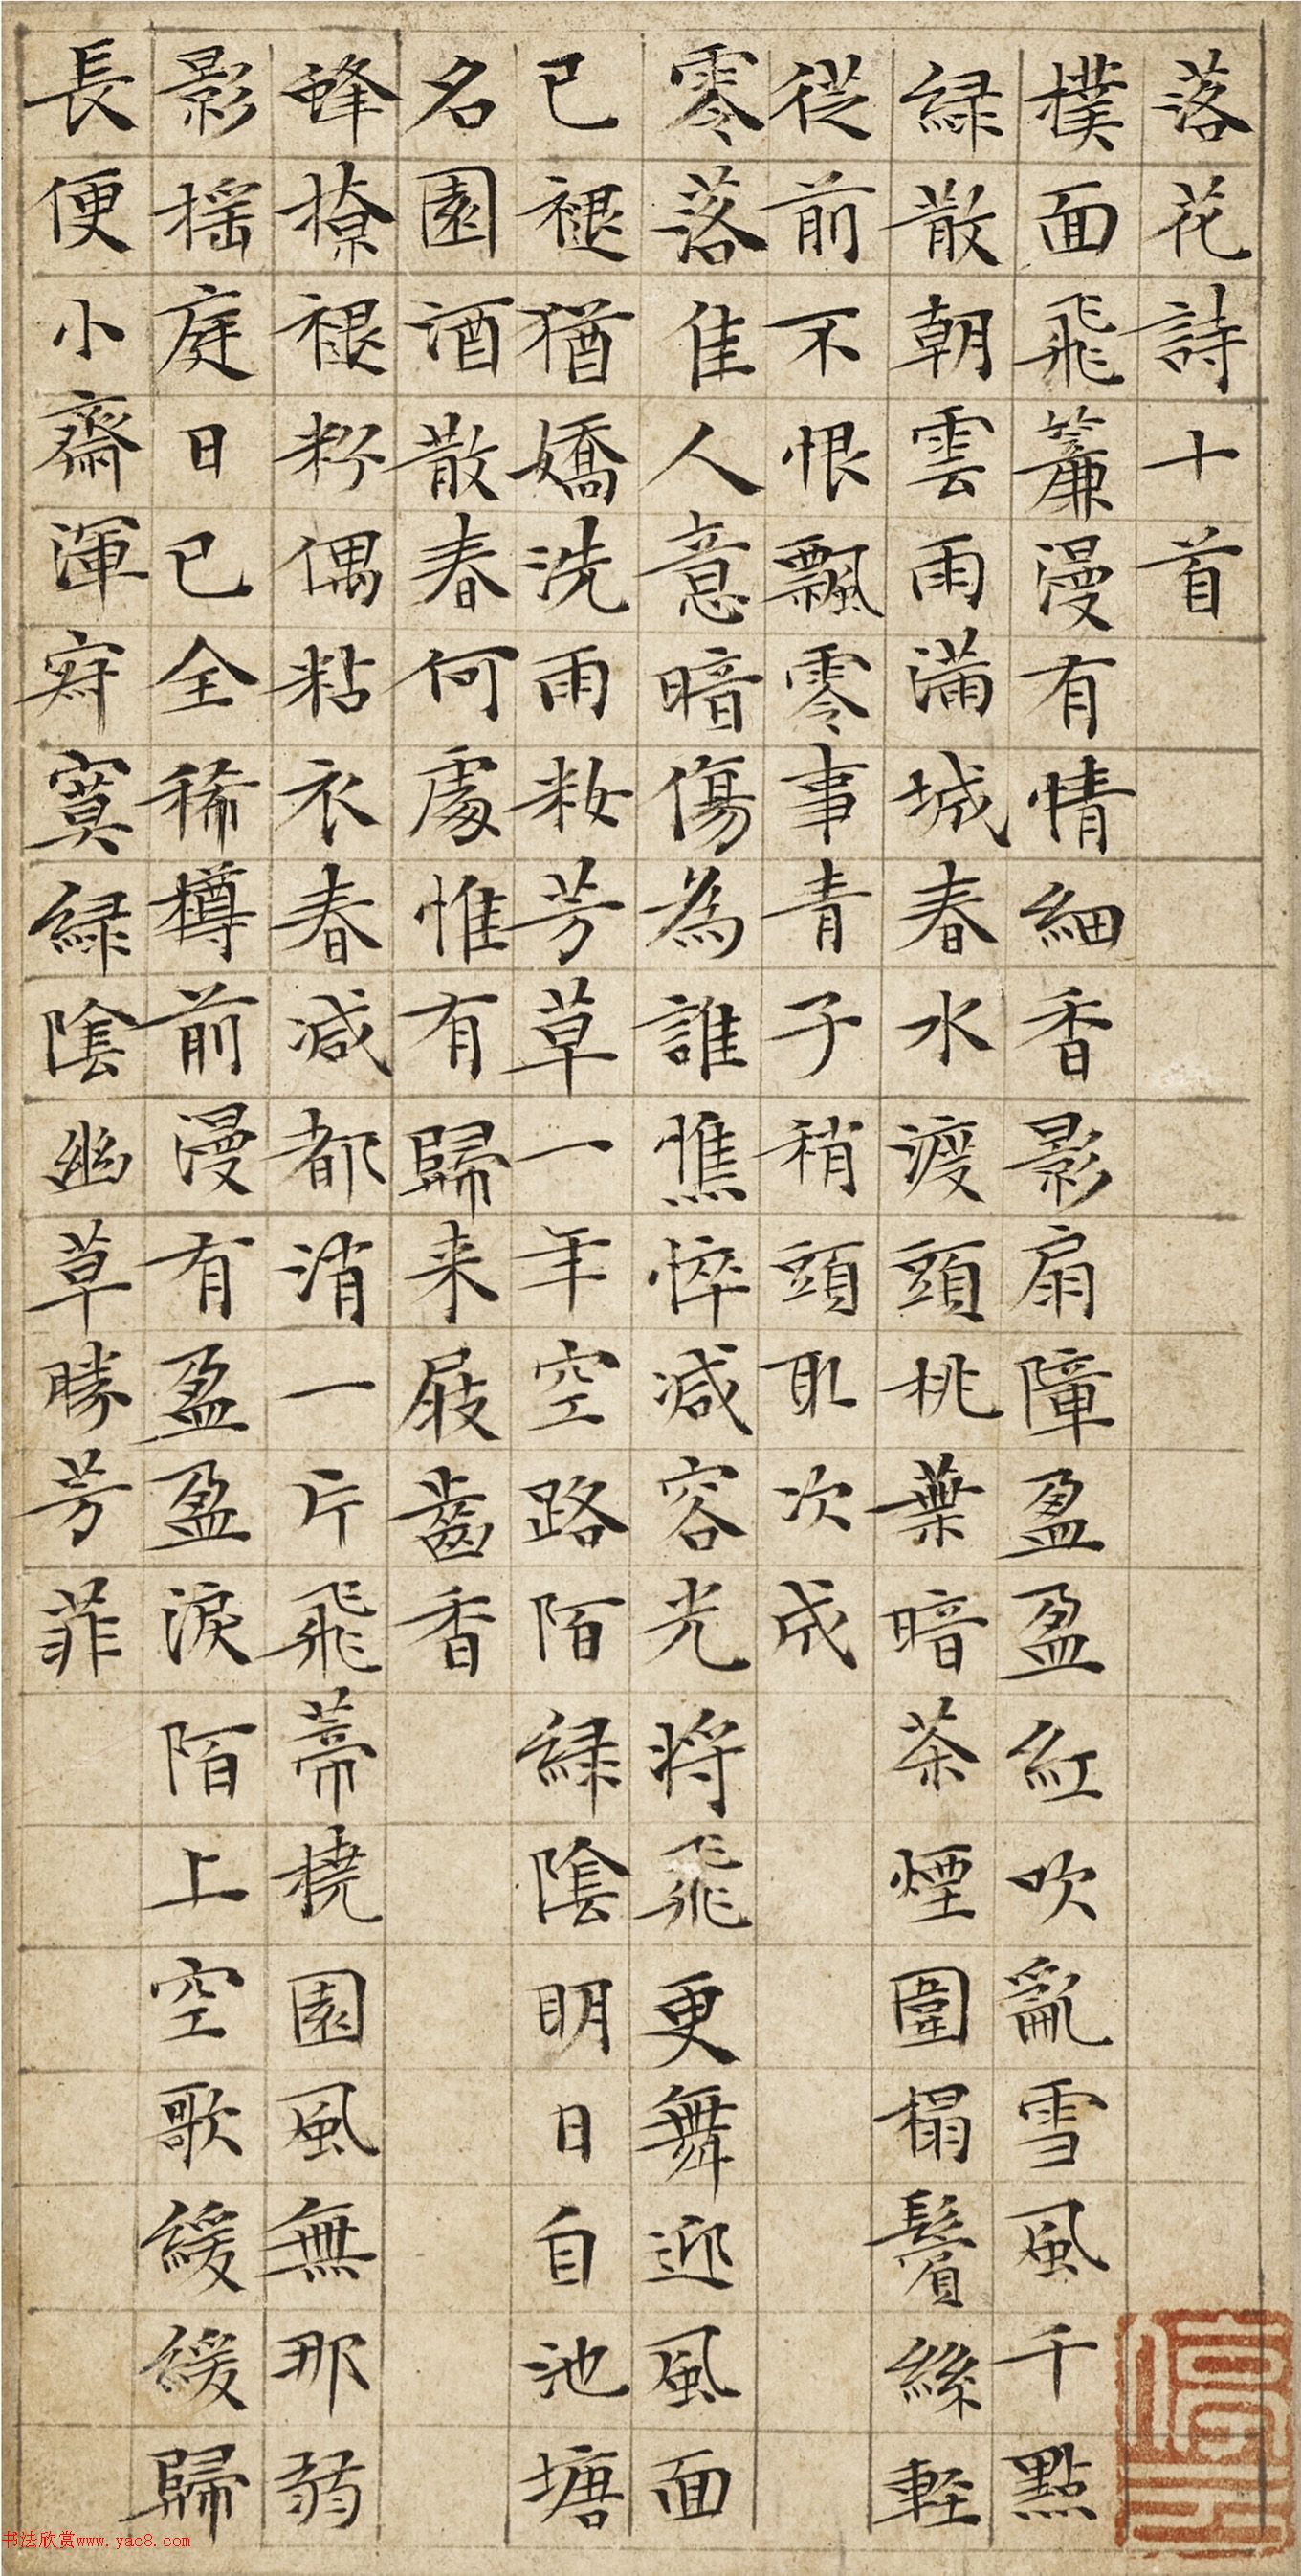 落花詩十首
樸面飛簾漫有情細香影扇障盈盈紅吹亂雪風千點
緑散朝雲雨滿城春水渡頭桃葉暗茶煙圍榻鬢絲輕
從前不恨飄零事青子稍頭取次成
零落佳人意暗傷為誰憔悴減容光將飛更舞迎風面
已褪猶嬌洗雨粧芳草一年空路陌緑陰明日自池塘
名園酒散春何處惟有歸来屐齒香
蜂撩褪粉偶粘衣春減都消一片飛蒂撓園風無那弱
影揺庭日已全稀樽前漫有盈盈淚陌上空歌緩緩歸
長便小齋渾寂寞緑陰幽草勝芳菲
书法欣赏www.yac8.com